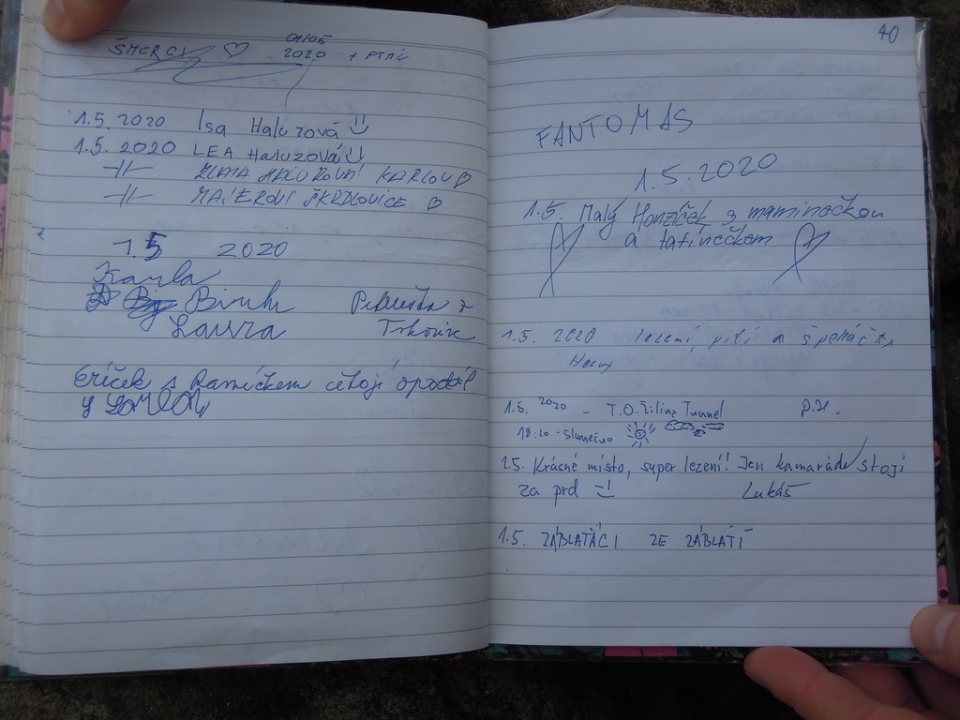 ŠMERCI ♡ 01/05 2020 + PTÁČ
1.5.2020 Isa Haluzová
1.5.2020 LEA Haluzová
-||- KARLOV ♡
-||- MAJEROVI ŠKRDLOVICE ♡
1.5 2020
Karla
Laura
s Ramíčkem opodál
40
FANTOMAS
1.5.2020
1.5. Malý Honzíček s maminečkou
a tatínečkem
1.5.2020 lezení, pití a špekáčky
1.5. 2020 - T.O. Tunnel P.H.
18:20 - Slunečno
1.5. Krásné místo, super lezení! Jen kamarádi stojí
za prd Lukáš
1.5. ZÁBLAŤÁCI ZE ZÁBLATÍ